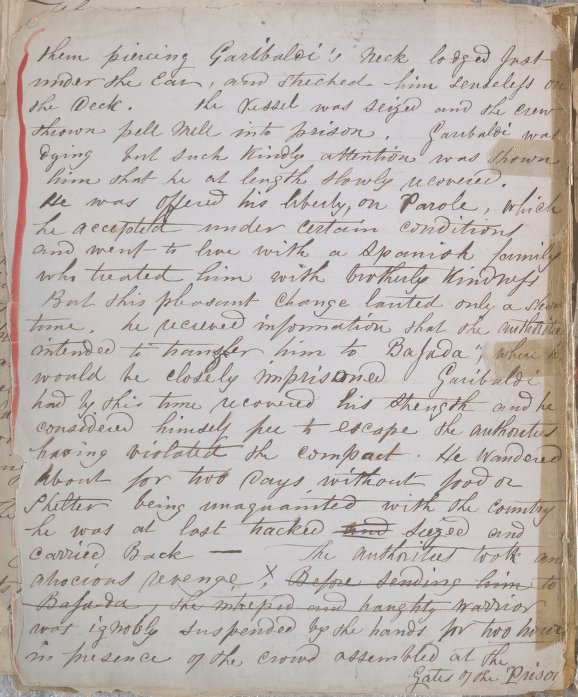 them piercing Garibaldi's Neck lodged Just
under the Ear, and streched him senseless on
the Deck. the Vessel was seized and the crew
thrown pell Mell into prison. Garibaldi was
dying but such Kindly attention was shown
him that he at length slowly recovered.
He was offered his liberty, on Parole, which
he accepted under Certain Conditions
and went to live with a Spanish family
who treated him with brotherly Kindness
But this pleasant Change lasted only a short
time. he recieved information that the authorities
intended to transfer him to Bajada", where he
would be closely Imprisoned Garibaldi
had by this time recovered his strength and he
considered himself free to escape the authorities
having violated the compact. He Wandered
About for two Days without food or
Shelter being unaquainted with the Country
he was at last tracked and seized and
carried Back — The Authorities took an
atrocious revenge, X Before sending him to
Bajada, the intrepid and haughty Warrior
was ignobly suspended by the hands for two hours
in presence of the crowd assembled at the
Gates of the Prison